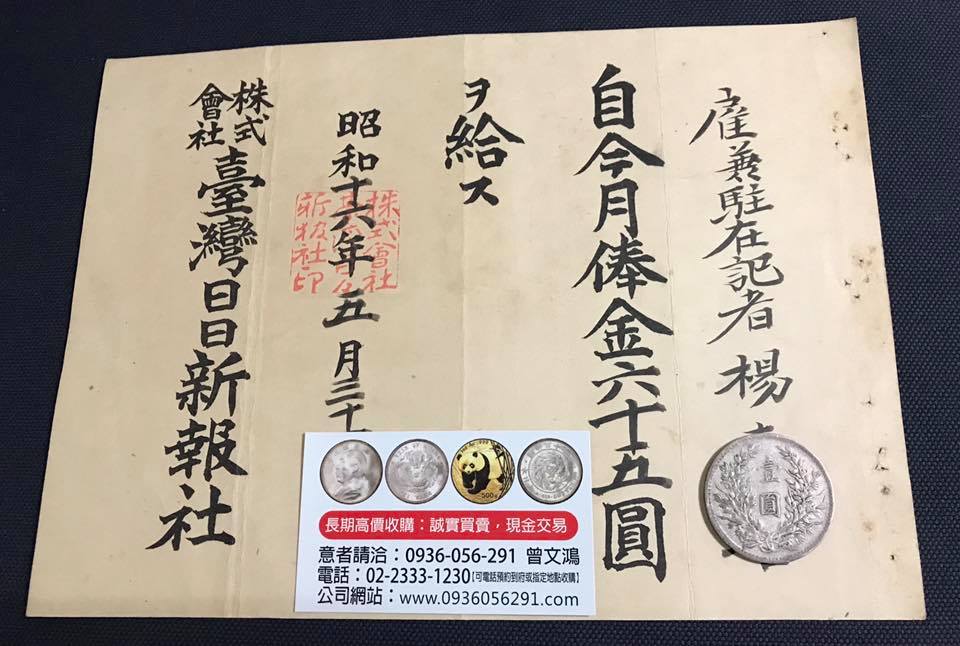 雇兼駐在記者 楊
自今月俸金六十五圓
ヲ給ス
昭和十六年五月三十
株式會社臺灣日日新報社
株式會社
新報社印
壹圓
500g
長期高價收購：誠實買賣，現金交易
意者請洽：0936-056-291 曾文鴻
電話：02-2333-1230【可電話預約到府或指定地點收購】
公司網站：www.0936056291.com